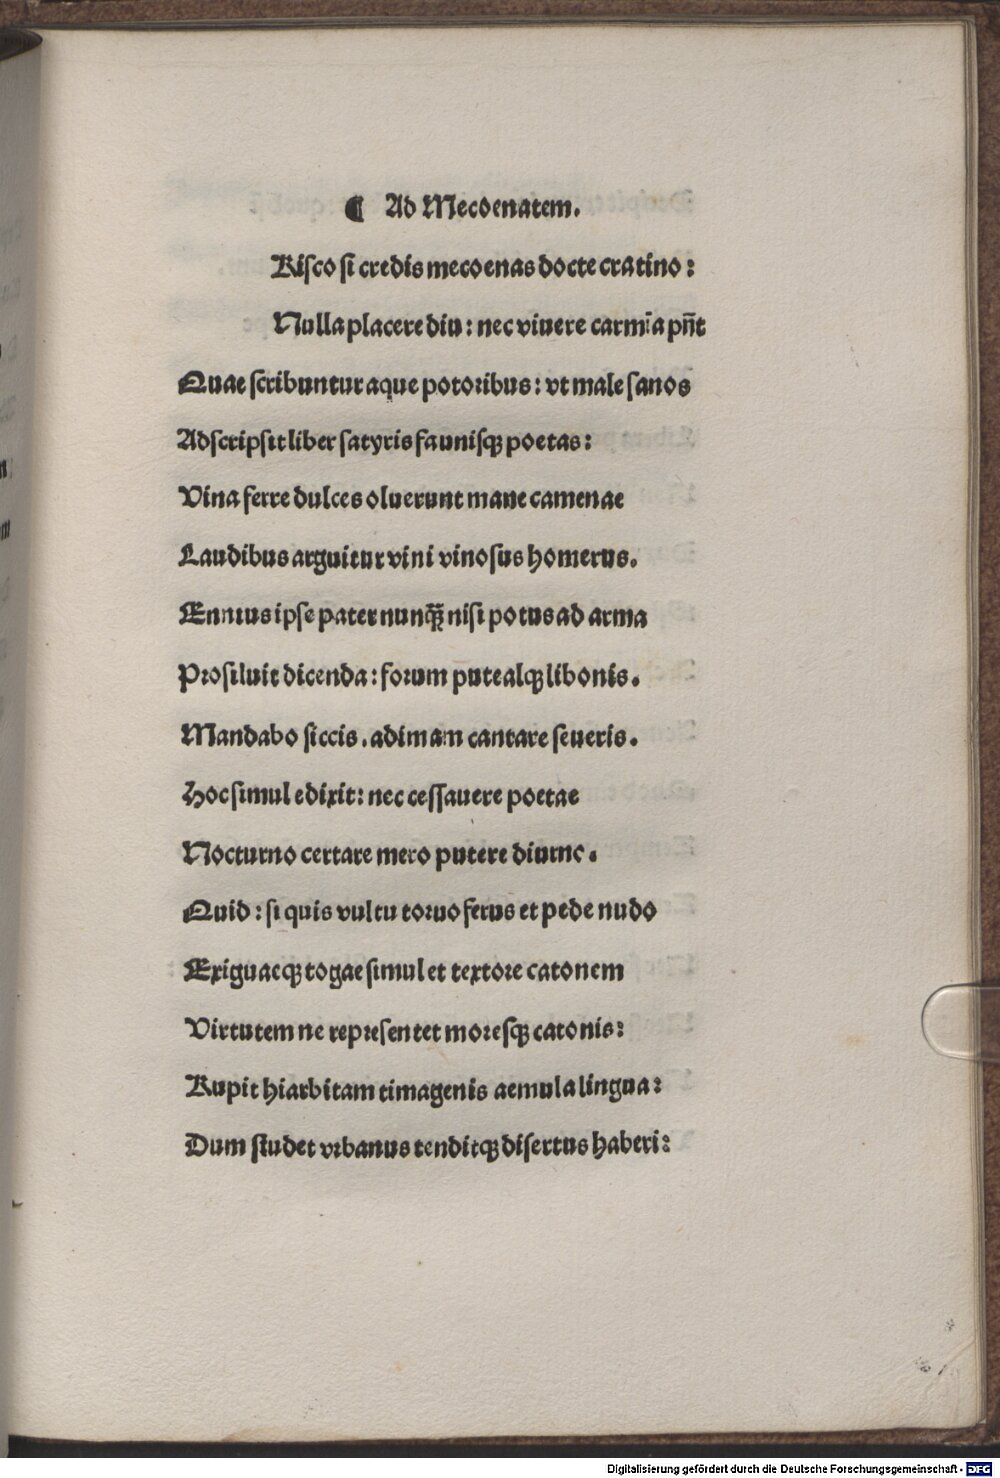 ¶ Ad Mecoenatem.
Risco si credis mecoenas docte cratino:
Nulla placere diu: nec viuere carmīa pn̄t
Quae scribuntur aque potoribus: vt male sanos
Adscripsit liber satyris faunisqꝫ poetas:
Vina ferre dulces oluerunt mane camenae
Laudibus arguitur vini vinosus homerus.
Ennius ipse pater nunqꝫ̄ nisi potus ad arma
Prosiluit dicenda: forum putealqꝫ libonis.
Mandabo siccis. adimam cantare seueris.
Hoc simul edixit: nec cessauere poetae
Nocturno certare mero putere diurno.
Quid: si quis vultu toruo ferus et pede nudo
Exiguaeqꝫ togae simul et textore catonem
Virtutem ne representet moresqꝫ catonis:
Rupit hiarbitam timagenis aemula lingua:
Dum studet vrbanus tenditqꝫ disertus haberi:
Digitalisierung gefördert durch die Deutsche Forschungsgemeinschaft - DFG